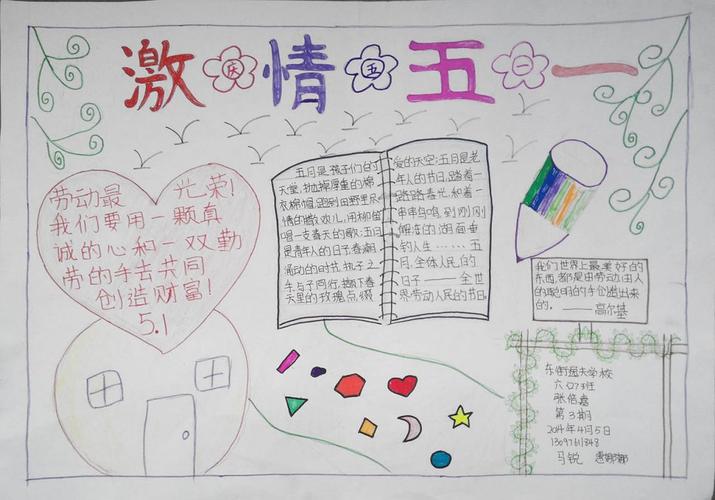 激 庆 情 五 五 一 一
劳动最 光荣!
我们要用一颗真
诚的心和一双勤
劳的手去共同
创造财富!
5.1
五月是孩子们的
天堂,抛掉厚重的棉
衣棉帽,跑到田野里尽
情的嬉戏
唱一支春天的歌;五月
是青年人的日子,春潮
涌动的时节,执子之
手与子同行,摘下春
天里的玫瑰点缀
爱的天空;五月是老
年人的节日,踏着一
路春光,和着一
串串鸟鸣,到刚刚
解冻的湖面垂
钓人生……五
月,全体人民的
日子——全世
界劳动人民的节日
我们世界上最美好的
东西,都是由劳动、由人
的聪明的手创造出来
的。——高尔基
学校
六(7)班
张倍嘉
第3期
2014年4月5日
马锐